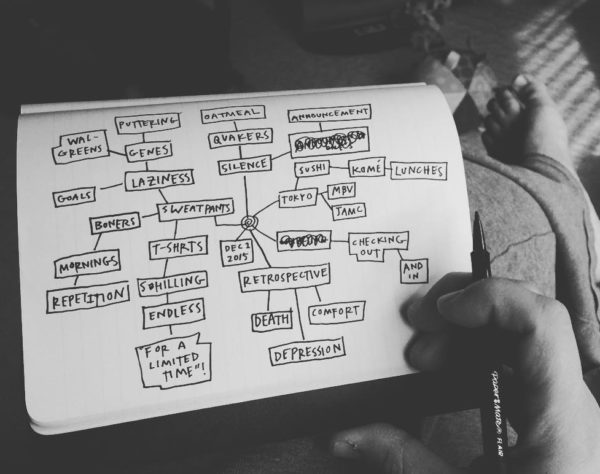 PUTTERING
OATMEAL
ANNOUNCEMENT
WAL-
GREENS
GENES
QUAKERS
SILENCE
SUSHI
KOMÉ
LUNCHES
GOALS
LAZINESS
TOKYO
MBV
JAMC
BONERS
SWEATPANTS
DEC 2
2015
CHECKING
OUT
AND
IN
MORNINGS
T-SHRTS
RETROSPECTIVE
REPETITION
SCHILLING
ENDLESS
DEATH
COMFORT
DEPRESSION
"FOR A
LIMITED
TIME"!
PAPER:MATE FLAIR